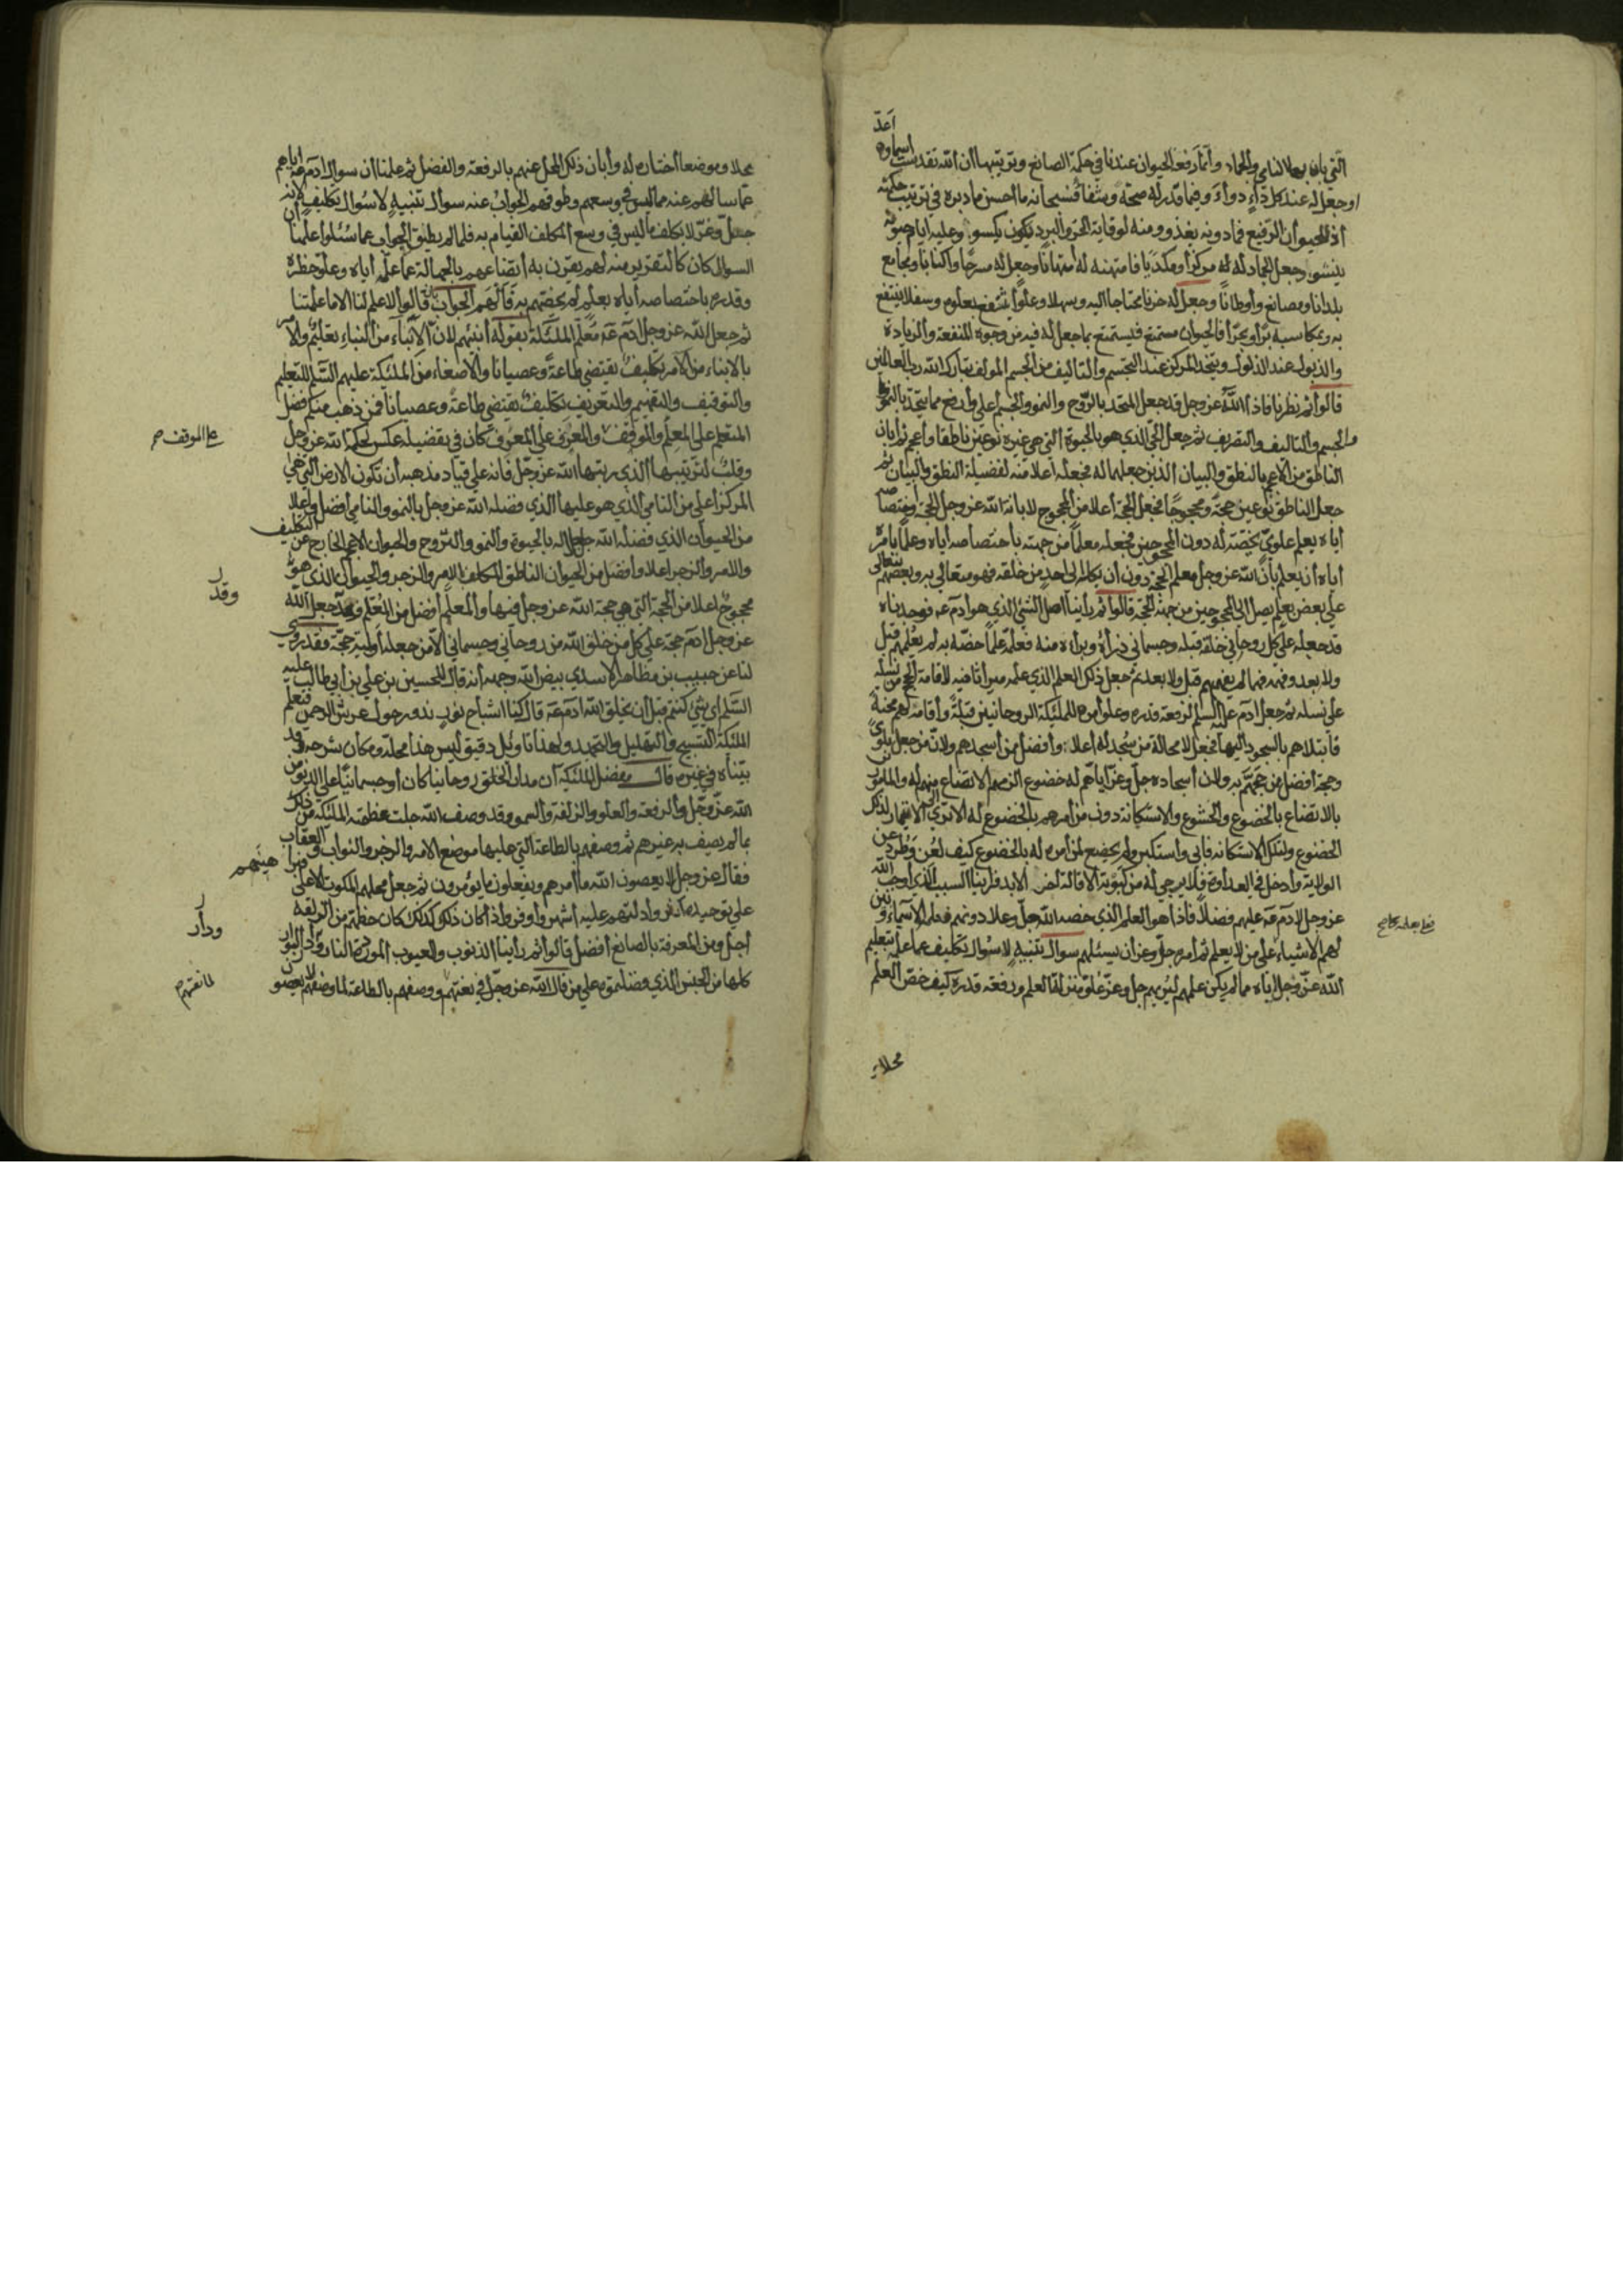 أعدّ
التي بان بها لا النامي والجماد وأنما رفعة الحيوان عندنا في حكمة الصانع وترتيبها أن الله تقدست اسماؤه
اوجعل له عند كل داءٍ دواءً وفيما قدّر له صحة وشفاء فسبحانه ما احسن ما دبره في ترتيب حكمته
أذ للحيوان الرفيع فما دونه يغذو ومنه لوقاية الحر والبرد يكون يكسو وعليه ايام حيوته
ينشو وجعل الجماد له مركزا وجعل له مسرحًا واكنانا ومجامع
بلدانا ومصانع وأوطانًا وجعل له خزنا محتاجا اليه وسهلا وعلوا وسفلا ينتفع
به ومكاسبه برًا وبحرًا فالحيوان مستمتع فيستمتع بما جعل له فيه من وجوه المنفعة والزيادة
والذبول عند الذبول ويتخذ المركز عند التجسيم والتاليف من الجسم المولف تبارك الله رب العالمين
قالوا ثم نظرنا فاذا الله عز وجل قد جعل المتحد بالروح والنمو والجسم أعلى وأرفع مما يتحد بالنمو
والجسم والتاليف والتصريف ثم جعل الحي الذي هو بالحيوة التي هي غيره نوعين ناطقا وأعجم ثم أبان
الناطق من الاعجم بالنطق والبيان الذين جعلهما له فجعله أعلا منه لفضيلة النطق والبيان ثم
جعل الناطق نوعين حجّة ومحجوجًا فجعل الحجة أعلا من المحجوج لابانة الله عز وجل الحجة واختصاصه
أياه بعلم علويّ يخصّه له دون المحجوجين فجعله معلمًا من جهته بأختصاصه اياه وعلمًا بامره
أياه أن يعلم بأن الله عز وجل معلم الحجة دون أن يكلم الى احد من خلقه فهو متعالي بتعالى بعضهم
على بعض بعلم يصل الى المحجوجين من جهة الحجة قالوا ثم رأينا اصل الشئ الذي هو أدم عم فوجدناه
قد جعله على كل روحاني خلقه قبله وجسماني ذرأه وبرأه منه فعلمه علمًا خصّه به لم يعلمهم قبل
ولا بعد وفهمه فهما لم يفهمهم قبل ولا بعد ثم جعل ذلك العلم الذي علمه ميراثا فيه لاقامة الحجج من نسله
على نسله ثم جعل ادم عليه السلم لرفعة قدره وعلو أمره للملئكة الروحانيين قبلةً وأقامه لهم محنةً
فأبتلاهم بالسجود اليها فجعل لا محالة من سُجد له أعلا وأفضل ممن أسجدهم ولان من جعل بلوى
وحجة أفضل من حجهم به ولان أسجاده جل وعز اياهم له خضوع الزمهم الاتضاع منهم له والمامور
بالاتضاع بالخضوع والخشوع والاستكانة دون من أمرهم بالخضوع له الا ترى الى الائتمار لذلك
الخضوع ولتلك الاستكانة فأبى واستكبر ولم يخضع لمن أمره له بالخضوع كيف لعُن وطُرد عن
الولاية وأدخل في العداوة فلا يرجى له من كبوته الاقالة آخر الابد فرأينا السبب الذي أوجب الله
عز وجل لادم عم عليهم فضلاً فاذا هو العلم الذي خصه الله جل وعلا دونهم فعلمه الاسماء وبين
لهم الاشياء على من لا يعلم ثم أمره جل وعز أن يسئلهم سوال تنبيهٍ لا سُوال تكليف عما علمه بتعليم
الله عز وجل اياه مما لم يكن علمهم ليُريهم جل وعز علو منزلة العلم ورفعة قدره كيف خصّ العلم
محلا
محلا وموضعا أختاره له وأبان ذلك المحل عنهم بالرفعة والفضل ثم علمنا ان سوال ادم عم اياهم
عما سالهم عنه مما ليس في وسعهم وطوقهم الجواب عنه سوال تنبيهٍ لا سُوال تكليفٍ لانه
جل وعز لا يكلف ما ليس في وسع المكلف القيام به فلما لم يطيق الجواب عما سُئلوا علمنا أن
السوال كان كالتقرير منه لهم يقرن به أتضاعهم بالجهالة عما علّم أياه وعلو خطره
وقدره باختصاصه أياه بعلم لم يخصّهم به فالهمهم الجواب قالوا لا علم لنا الا ما علمتنا
ثم جعل الله عز وجل ادم عم مُعلم الملئكة بقوله أنبئهم لان الانباء من النباء تعليم والامر
بالانباء من الامر تكليفٌ يقتضي طاعةً وعصيانًا والاصغاء من الملئكة عليهم السّلم للتعليم
والتوقيف والتفهيم والتعريف تكليفٌ يقتضي طاعةً وعصيانا فمن ذهب منكم فضل
المتعلم على المعلم والموقف والمعرّف على المعرّف كان في تفضيله عكس لحكمة الله عز وجل
على الموقف صح
وقلبٌ لترتيبها الذي رتبها الله عز وجل فانه على قياد مذهبه أن تكون الارض التي هي
المركز أعلى من النامي الذي هو عليها الذي فضله الله عز وجل بالنمو والنامي أفضل وأعلا
من الحيوان الذي فضله الله جل جلاله بالحيوة والنمو والروح والحيوان الاعجم الخارج عن التكليف
والامر والزجر اعلا وأفضل من الحيوان الناطق المكلف للامر والزجر والحيوان الذي هو
محجوجٌ أعلا من الحجة التي هي حجة الله عز وجل فيها والمعلم أفضل من المُعلم وقد جعل الله
وقد
عز وجل أدم حجة على كل من خلق الله من روحاني وجسماني الا من جعل له أولية حجّة وقد روي
لنا عن حبيب بن مظاهر الاسدي بيض الله وجهه أنه قال للحسين بن علي بن أبي طالب عليه
السّلم اي شئ كنتم قبل أن يخلق الله ادم عم قال كنا اشباح نور ندور حول عرش الرحمن فنعلم
الملئكة التسبيح والتهليل والتحميد ولهذا تأويل دقيق ليس هذا محله ومكان شرحه وقد
بيّناه في غيره قال مفضل الملئكة أن مدار الخلق روحانيا كان أو جسمانيًا على الدنو من
الله عز وجل والرفعة والعلو والزلفة والسمو وقد وصف الله جلت عظمته الملئكة من ذلك
بما لم يصف به غيرهم ثم وصفهم بالطاعة التي عليها موضع الامر والزجر والثواب والعقاب
فقال عز وجل لا يعصون الله ما أمرهم ويفعلون ما يؤمرون ثم جعل محلهم الملكوت الاعلى
على توحيده وادلتهم عليه أشهر وأوفر وأذا كان ذلك كذلك كان حظهم من الزلفة
ودار
أجل ومن المعرفة بالصانع أفضل قالوا ثم رأينا الذنوب والعيوب الموردة النار ودار البوار
كلها من الجنس الذي فضلتموه على من قال الله عز وجل في نعتهم ووصفهم بالطاعة لما وصفهم لا يعصون